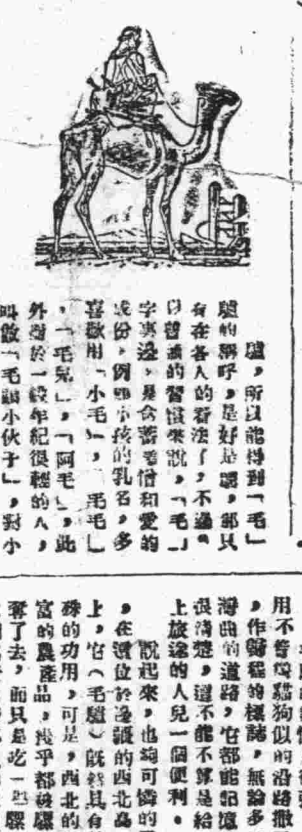 驢，所以能得到「毛」
驢的稱呼，是好是壞，那只
有在各人的看法了，不過
普通的習慣來說，「毛」
字裏邊，是含蓄着憎和愛的
成份，例如小孩的乳名，多
喜歡用「小毛」，「毛毛」
，「毛兒」，「阿毛」，此
外對於一般年紀很輕的人，
叫做「毛頭小伙子」，對小
用不着像貓狗似的沿路撒
，作歸程的標誌，無論多
灣曲的道路，它都能記憶
很清楚，這不能不算是給
上旅途的人兒一個便利。
說起來，也夠可憐的
，在這位於邊疆的西北高
上，它（毛驢）既然具有
的功用，可是，西北的
富的農產品，幾乎都被騾
奪了去，而只是吃一些騾